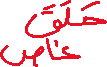 حَلَقَ
غاص